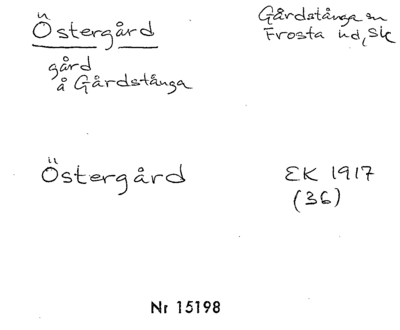 Östergård
Gårdstånga sn
Frosta hd, Sk
gård
å Gårdstånga
Östergård
EK 1917
(36)
Nr 15198